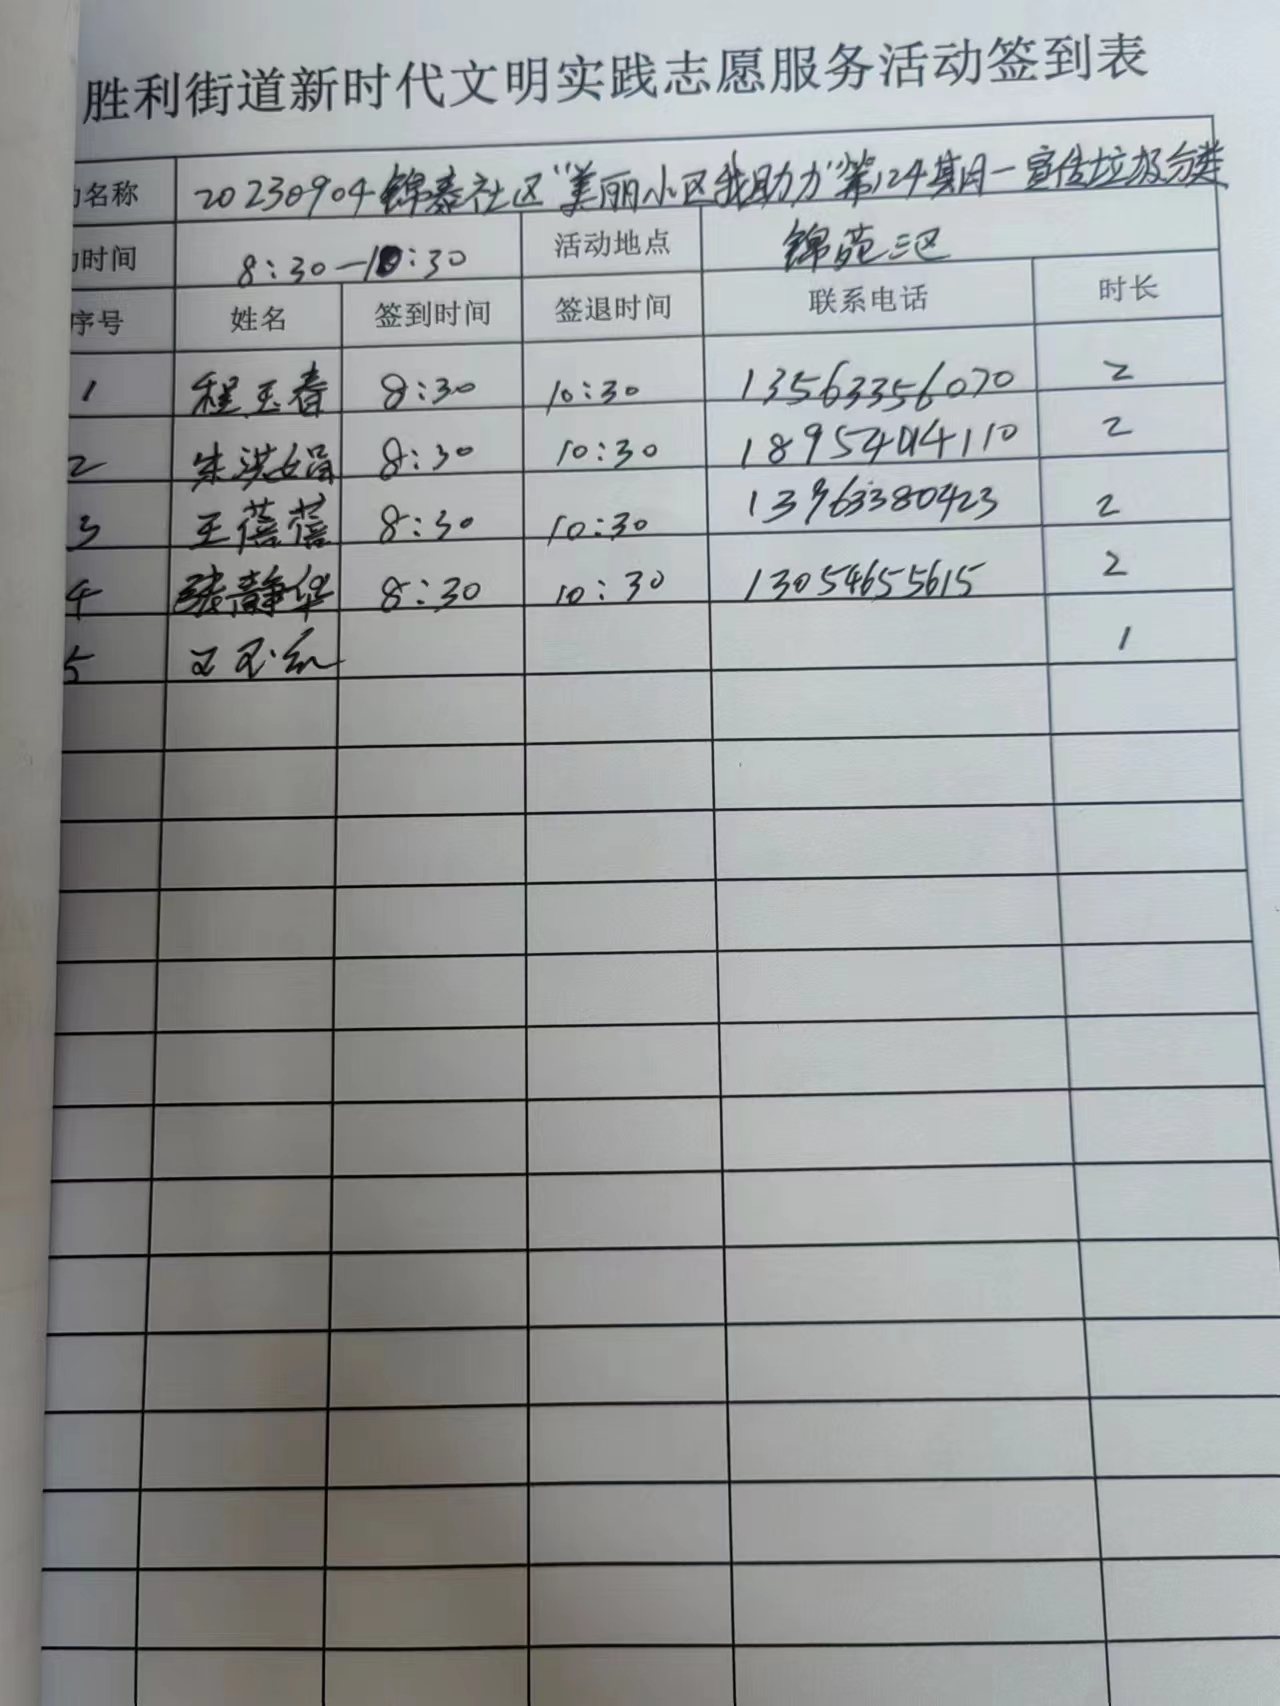 胜利街道新时代文明实践志愿服务活动签到表
动名称 20230904锦泰社区“美丽小区我助力”第124期—宣传垃圾分类
动时间 8:30—10:30 活动地点 锦苑三区
序号 姓名 签到时间 签退时间 联系电话 时长
1 程玉春 8:30 10:30 13563356070 2
2 朱洪娟 8:30 10:30 18954014110 2
3 王蓓蓓 8:30 10:30 13963380423 2
4 张静华 8:30 10:30 13054655615 2
5 王玉红 1